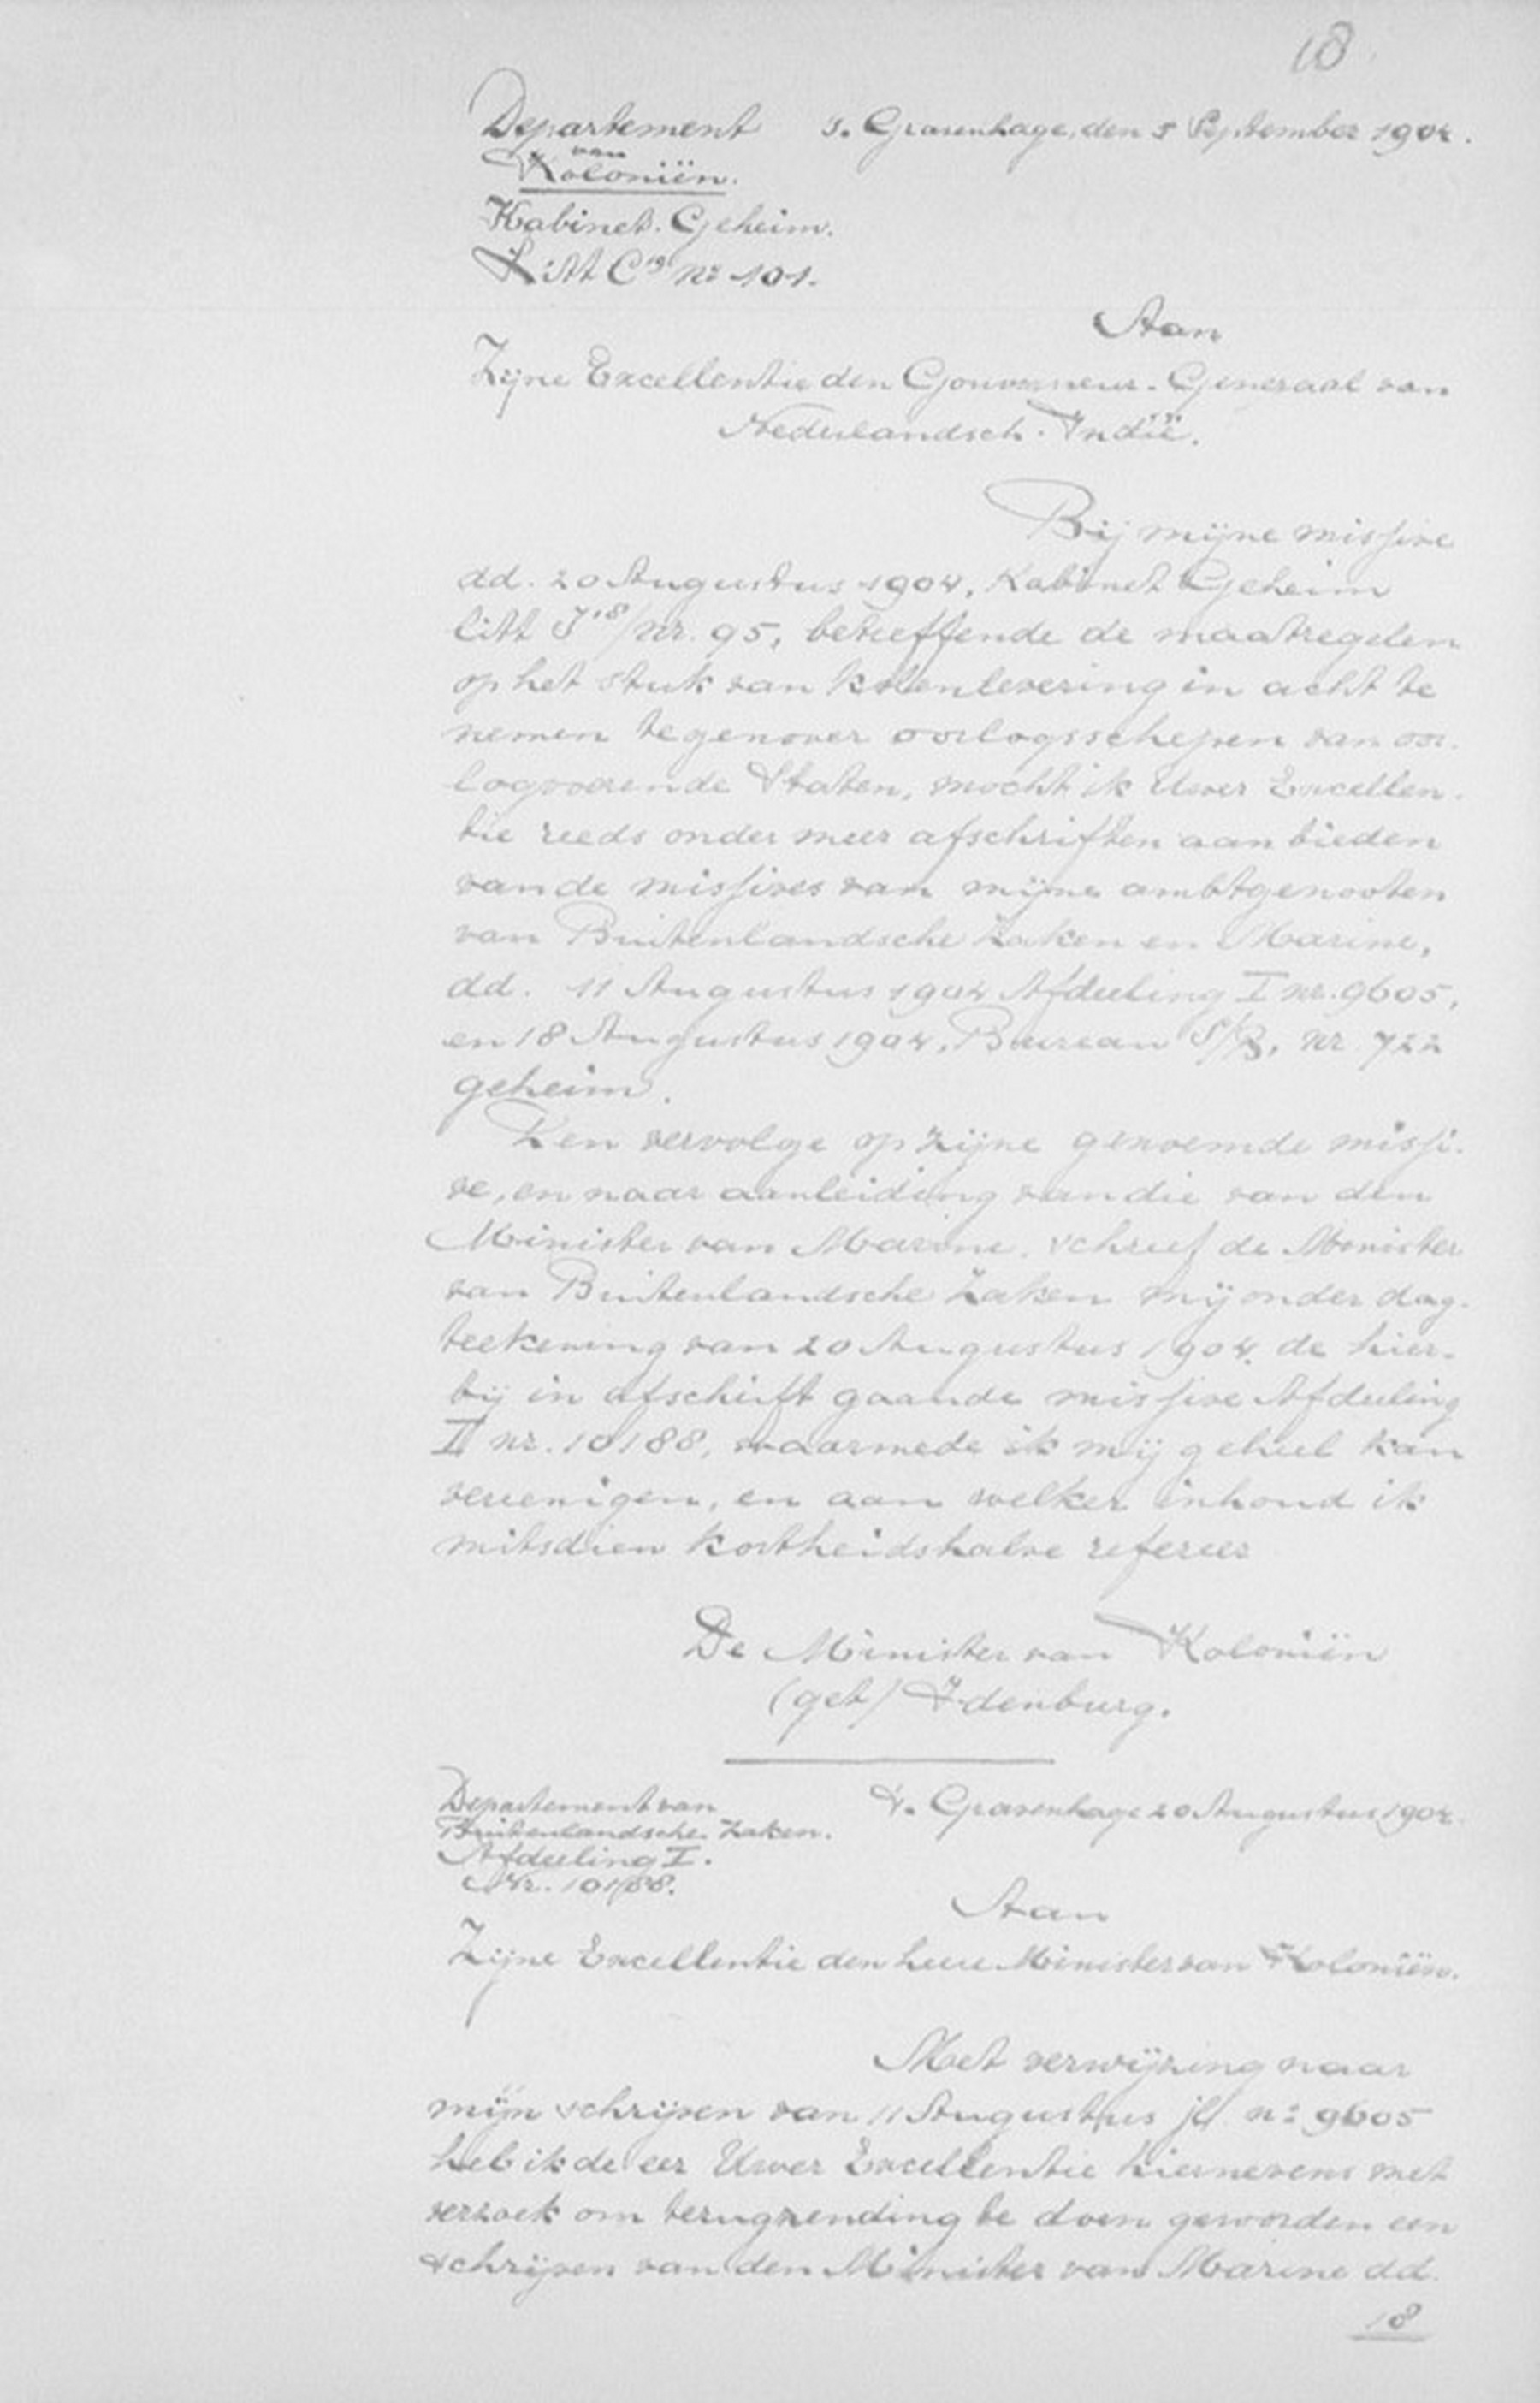 18
Departement s. Gravenhage, den 5 September 1904.
van
Koloniën.
Kabinet. Geheim.
Litt C19 No 101.
Aan
Zijne Excellentie den Gouverneur-Generaal van
Nederlandsch-Indië.
Bij mijne missive
dd. 20 Augustus 1904, Kabinet Geheim
litt J18/nr. 95, betreffende de maatregelen
op het stuk van kolenlevering in acht te
nemen tegenover oorlogsschepen van oor-
logvoerende Staten, mocht ik Uwer Excellen-
tie reeds onder meer afschriften aanbieden
van de missives van mijne ambtgenooten
van Buitenlandsche Zaken en Marine,
dd. 11 Augustus 1904 Afdeeling I nr. 9605,
en 18 Augustus 1904, Bureau S/B, nr 722
geheim.
Ten vervolge op zijne genoemde missi-
ve, en naar aanleiding van die van den
Minister van Marine, schreef de Minister
van Buitenlandsche Zaken mij onder dag-
teekening van 20 Augustus 1904, de hier-
bij in afschrift gaande missive Afdeeling
I nr. 10188, waarmede ik mij geheel kan
vereenigen, en aan welker inhoud ik
mitsdien kortheidshalve refereer
De Minister van Koloniën
(get) Idenburg.
Departement van s. Gravenhage 20 Augustus 1904.
Buitenlandsche Zaken.
Afdeeling I.
Nr. 10188.
Aan
Zijne Excellentie den heere Minister van Koloniën.
Met verwijzing naar
mijn schrijven van 11 Augustus jl. no 9605
heb ik de eer Uwer Excellentie hiernevens met
verzoek om terugzending te doen geworden een
schrijven van den Minister van Marine dd.
18